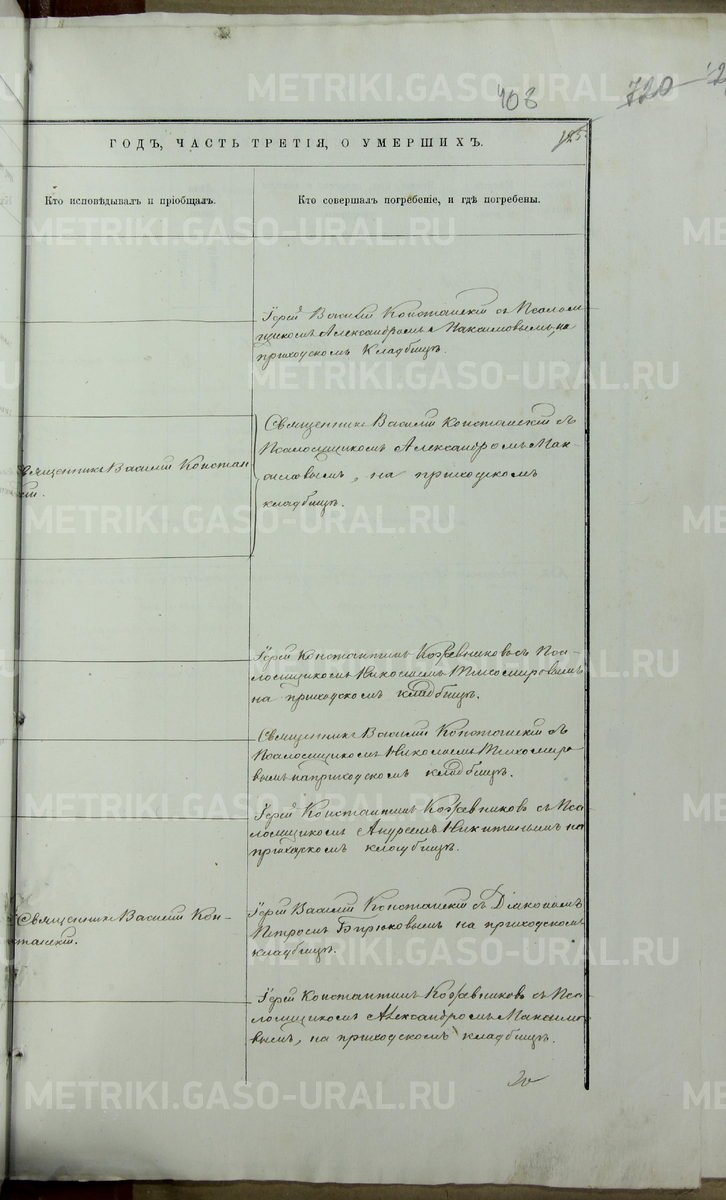 408
720
125.
ГОДЪ, ЧАСТЬ ТРЕТІЯ, О УМЕРШИХЪ.
Кто исповѣдывалъ и пріобщалъ.
Кто совершалъ погребеніе, и гдѣ погребены.
Іерей Василій Констанскій съ Псалом
щикомъ Александромъ Максимовымъ, на
приходскомъ Кладбищѣ.
Священникъ Василій Констан
скій.
Священникъ Василій Констанскій съ
Псаломщикомъ Александромъ Мак-
симовымъ, на приходскомъ
кладбищѣ.
Іерей Константинъ Кожевниковъ съ Пса-
ломщикомъ Николаемъ Тихомировымъ
на приходскомъ кладбищѣ.
Священникъ Василій Констанскій съ
Псаломщикомъ Николаемъ Тихомиро
вымъ на приходскомъ кладбищѣ.
Іерей Константинъ Кожевниковъ съ Пса-
ломщикомъ Андреемъ Никитинымъ на
приходскомъ кладбищѣ.
Священникъ Василій Кон-
станскій.
Іерей Василій Констанскій съ Діакономъ
Петромъ Бирюковымъ на приходскомъ
кладбищѣ.
Іерей Константинъ Кожевниковъ съ Пса-
ломщикомъ Александромъ Максимо
вымъ, на приходскомъ кладбищѣ.
METRIKI.GASO-URAL.RU